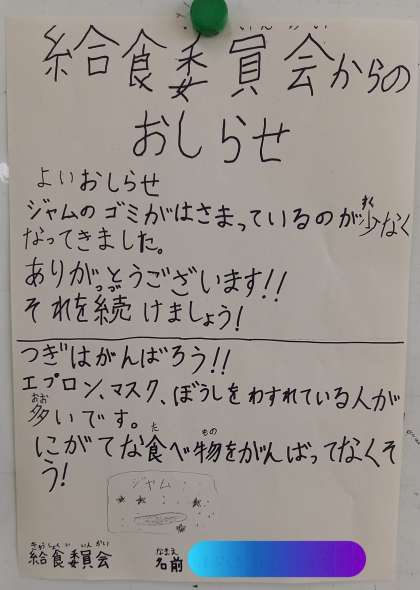 給食委員会からの
おしらせ
よいおしらせ
ジャムのゴミがはさまっているのが少なく
なってきました。
ありがっとうございます!!
それを続けましょう!
つぎはがんばろう!!
エプロン、マスク、ぼうしをわすれている人が
多いです。
にがてな食べ物をがんばってなくそ
う!
ジャム
給食委員会 名前